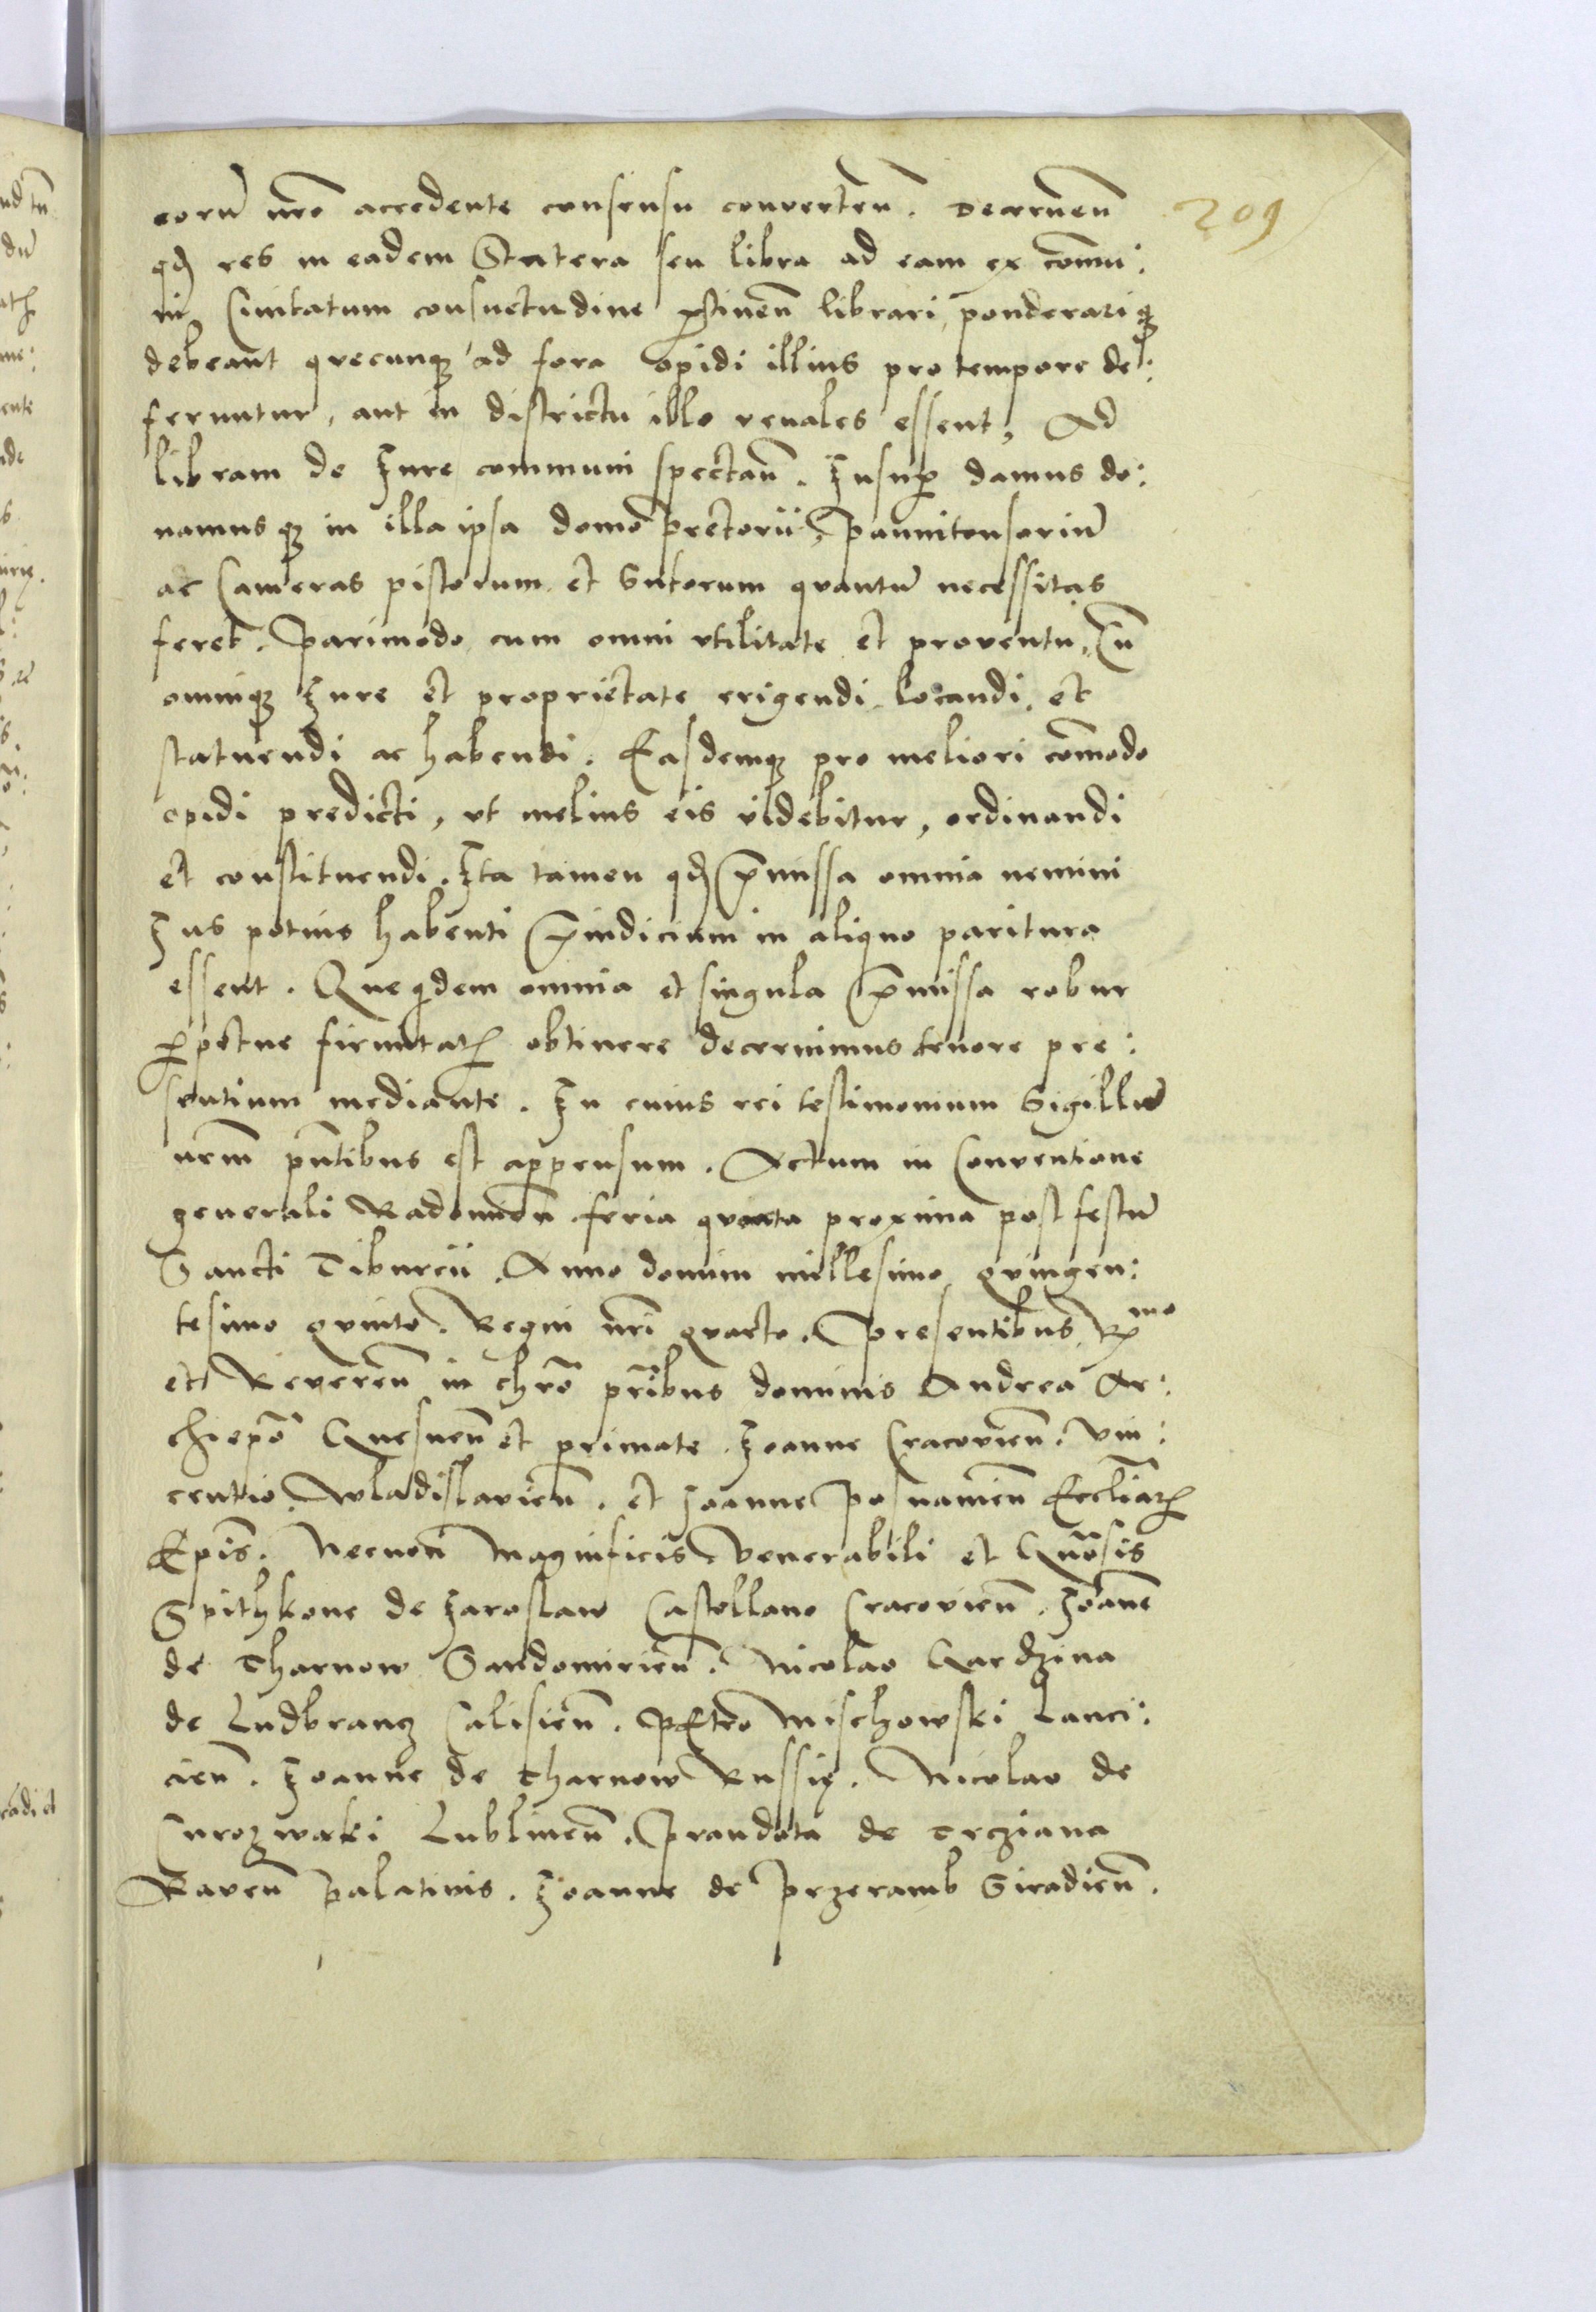 209
eorū nr̄o accedente consensu converten̄. Decernen̄
qđ res in eadem Statera seu libra ad eam ex com̄u:
ni Civitatum consuetudine ꝑtinen̄ librari ponderariqꝫ
debeant quecunqꝫ ad fora opidi illius pro tempore de:
feruntur, aut in districtu illo venales essent, Ad
libram de Iure communi spectan̄. Insuꝑ damus do:
namusqꝫ in illa ipsa domo pretorii, Pannitonsoriū
ac Cameras pistorum et Sutorum quantū necessitas
feret. Parimodo cum omni utilitate et proventu, Cū
omniqꝫ Iure et proprietate erigendi locandi, et
statuendi ac habendi. Easdemqꝫ pro meliori com̄odo
opidi predicti, ut melius eis videbitur, ordinandi
et constituendi. Ita tamen qđ p̄missa omnia nemini
Ius potius habenti p̄iudicium in aliquo paritura
essent. Que quidem omnia et singula p̄missa robur
ꝑpetue firmitatꝭ obtinere decernimus tenore pre:
sentium mediante. In cuius rei testimonium Sigillū
nrm̄ pn̄tibus est appensum. Actum in Conventione
generali Radomien̄ feria quarta proxima post festū
Sancti Tiburcii, Anno domini millesimo quingen:
tesimo quinto. Regni nr̄i quarto. Presentibus Rmo
et Reveren̄ in chr̄o pr̄ibus dominis Andrea Ar:
chiepō Gnesnen̄ et primate. Joanne Cracovien̄. Vin:
centio, Wladislavien̄. et Joanne Posnanien̄ Eccl̄iarꝝ
Epīs. Necnon Magnificis, Venerabili et Gn̄osis
Spithkone de Jaroslaw Castellano Cracovien̄. Joan̄e
de Tharnow Sandomirien̄. Nicolao Gardzina
de Ludbrancz Calisien̄. Petro Mischowski Lanci:
cien̄. Joanne de Tharnow Russię. Nicolao de
Curozwaki Lublinen̄. Prandota de Trcziana
Raven̄ Palatinis. Joanne de Przeramb Siradien̄.